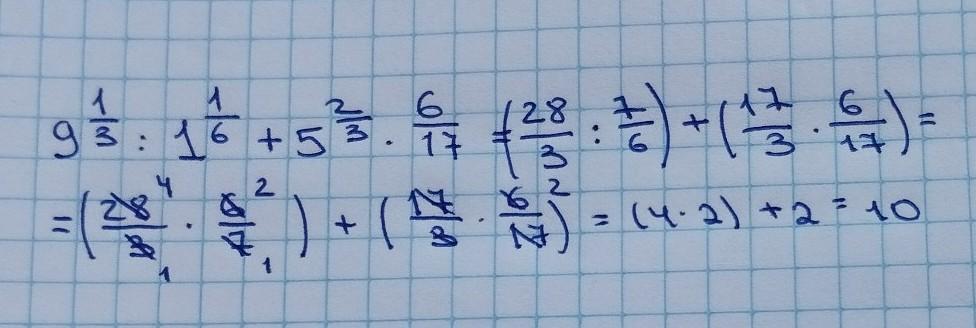 9 1/3 : 1 1/6 + 5 2/3 · 6/17 = (28/3 : 7/6) + (17/3 · 6/17) =
= (28/3 4 1 · 6/7 2 1) + (17/3 · 6/17 2) = (4·2) + 2 = 10